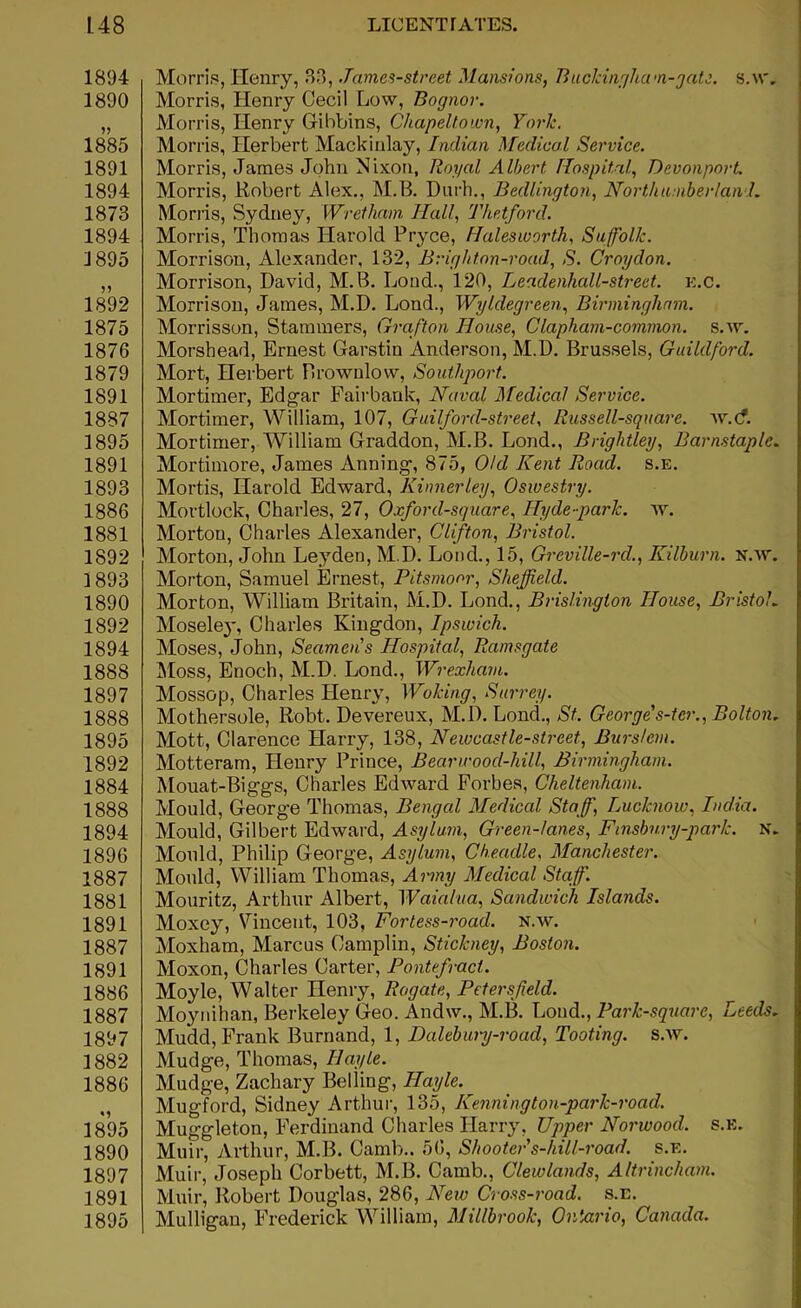 148 LICENTIATES.
1894 Morris, Henry, 33, James-street Mansions, Buckingham-gate. S.W.
1890 Morris, Henry Cecil Low, Bognor.
„ Morris, Henry Gibbins, Chapeltown, York.
1885 Morris, Herbert Mackinlay, Indian Medical Service.
1891 Morris, James John Nixon, Royal Albert Hospital, Devonport.
1894 Morris, Robert Alex., M.B. Durh., Bedlington, Northumberland.
1873 Morris, Sydney, Wretham Hall, Thetford.
1894 Morris, Thomas Harold Pryce, Halesworth, Suffolk.
1895 Morrison, Alexander, 132, Brighton-road, S. Croydon.
„ Morrison, David, M.B. Lond., 120, Leadenhall-street. E.C.
1892 Morrison, James, M.D. Lond., Wyldegreen, Birmingham.
1875 Morrisson, Stammers, Grafton House, Clapham-common. S.W.
1876 Morshead, Ernest Garstin Anderson, M.D. Brussels, Guildford.
1879 Mort, Herbert Brownlow, Southport.
1891 Mortimer, Edgar Fairbank, Naval Medical Service.
1887 Mortimer, William, 107, Guilford-street, Russell-square. W.C.
1895 Mortimer, William Graddon, M.B. Lond., Brightley, Barnstaple.
1891 Mortimore, James Anning, 875, Old Kent Road. S.E.
1893 Mortis, Harold Edward, Kinnerley, Oswestry.
1886 Mortlock, Charles, 27, Oxford-square, Hyde-park. W.
1881 Morton, Charles Alexander, Clifton, Bristol.
1892 Morton, John Leyden, M.D. Lond., 15, Greville-rd., Kilburn. N.W.
1893 Morton, Samuel Ernest, Pitsmoor, Sheffield.
1890 Morton, William Britain, M.D. Lond., Brislington House, Bristol.
1892 Moseley, Charles Kingdon, Ipswich.
1894 Moses, John, Seamen's Hospital, Ramsgate
1888 Moss, Enoch, M.D. Lond., Wrexham.
1897 Mossop, Charles Henry, Woking, Surrey.
1888 Mothersole, Robt. Devereux, M.D. Lond., St. George's-ter., Bolton.
1895 Mott, Clarence Harry, 138, Newcastle-street, Burslem.
1892 Motteram, Henry Prince, Bearwood-hill, Birmingham.
1884 Mouat-Biggs, Charles Edward Forbes, Cheltenham.
1888 Mould, George Thomas, Bengal Medical Staff, Lucknow, India.
1894 Mould, Gilbert Edward, Asylum, Green-lanes, Finsbury-park. N.
1896 Mould, Philip George, Asylum, Cheadle, Manchester.
1887 Mould, William Thomas, Army Medical Staff.
1881 Mouritz, Arthur Albert, Waialua, Sandwich Islands.
1891 Moxey, Vincent, 103, Fortess-road. N.W.
1887 Moxham, Marcus Camplin, Stickney, Boston.
1891 Moxon, Charles Carter, Pontefract.
1886 Moyle, Walter Henry, Rogate, Petersfield.
1887 Moynihan, Berkeley Geo. Andw., M.B. Lond., Park-square, Leeds.
1897 Mudd, Frank Burnand, 1, Dalebury-road, Tooting. S.W.
1882 Mudge, Thomas, Hayle.
1886 Mudge, Zachary Belling, Hayle.
„ Mugford, Sidney Arthur, 135, Kennington-park-road.
1895 Muggleton, Ferdinand Charles Harry, Upper Norwood. S.E.
1890 Muir, Arthur, M.B. Camb.. 56, Shooter's-hill-road. S.E.
1897 Muir, Joseph Corbett, M.B. Camb., Clewlands, Altrincham.
1891 Muir, Robert Douglas, 286, New Cross-road. S.E.
1895 Mulligan, Frederick William, Millbrook, Ontario, Canada.